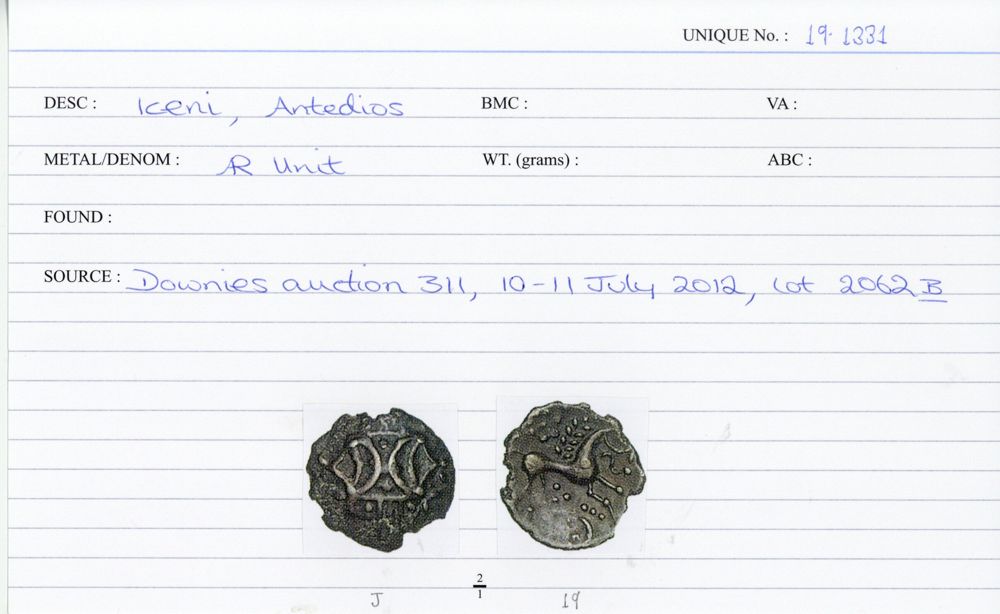 UNIQUE No. : 19.1331
DESC : Iceni, Antedios BMC : VA :
METAL/DENOM : AR Unit WT. (grams) : ABC :
FOUND :
SOURCE : Downies auction 311, 10-11 July 2012, lot 2062 B
2
1
J 19